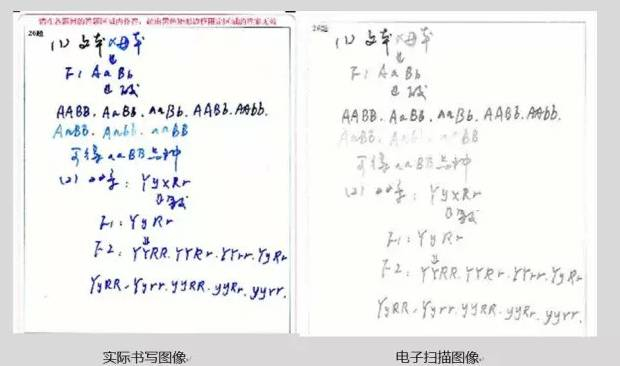 请在各题目的答题区域内作答，超出黑色矩形边框限定区域的答案无效
26题
(1) 父本×母本
F1 AaBb
AABB. AaBB. aaBb. AABb. AAbb.
AaBb. Aabb. aaBB
可得aaBB品种
(2) YyxRr
F1: YyRr
F2: YYRR. YYRr. YYrr. YyRr
YyRR. Yyrr. yyRR. yyRr. yyrr.
实际书写图像
26题
(1) 父本×母本
F1 AaBb
AABB. AaBB. aaBb. AABb. AAbb.
AaBb. Aabb. aaBB
可得aaBB品种
(2) YyxRr
F1: YyRr
F2: YYRR. YYRr. YYrr. YyRr
YyRR. Yyrr. yyRR. yyRr. yyrr.
电子扫描图像